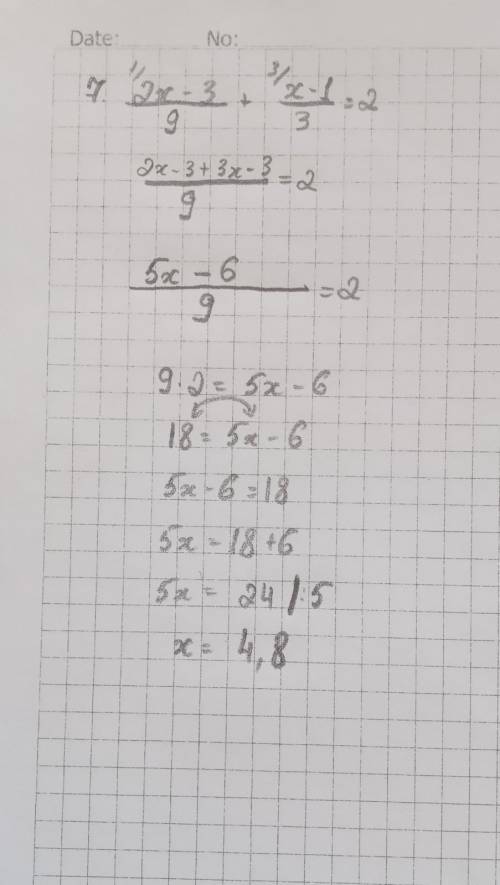 Date: No:
7. ¹/ 2x - 3 / 9 + ³/ x - 1 / 3 = 2
2x - 3 + 3x - 3 / 9 = 2
5x - 6 / 9 = 2
9 · 2 = 5x - 6
18 = 5x - 6
5x - 6 = 18
5x = 18 + 6
5x = 24 | : 5
x = 4,8